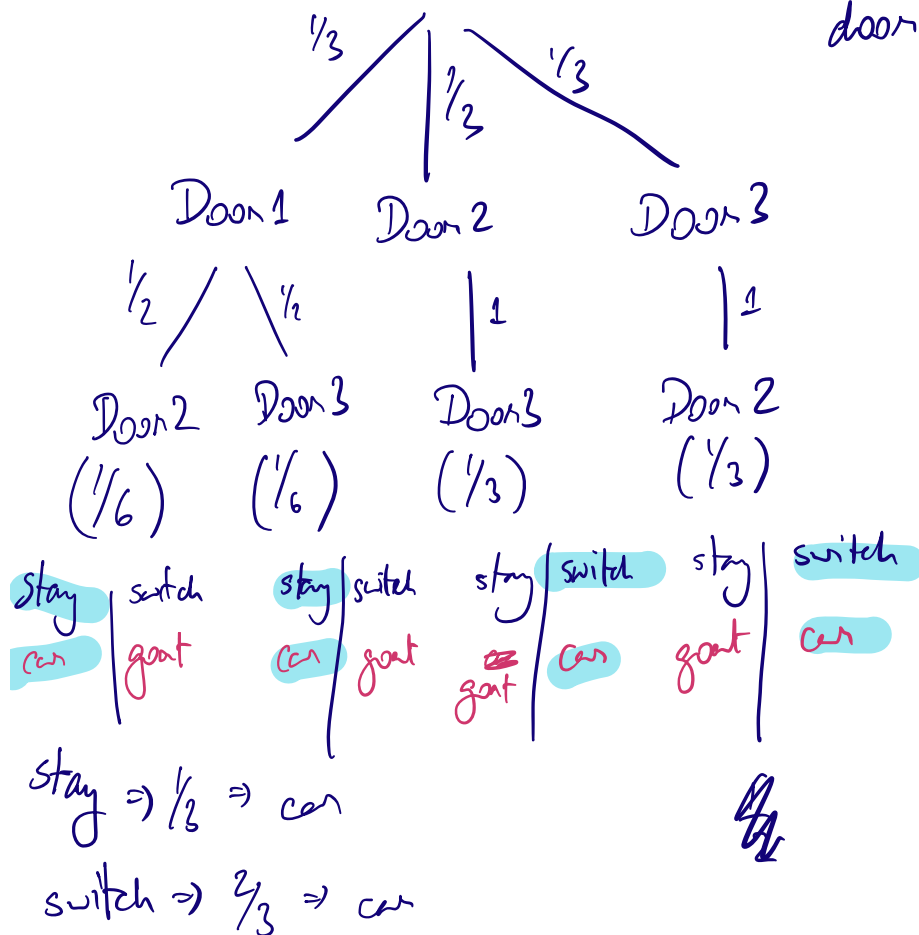 door
1/3 1/3 1/3
Door 1 Door 2 Door 3
1/2 1/2 1 1
Door 2 Door 3 Door 3 Door 2
(1/6) (1/6) (1/3) (1/3)
stay switch stay switch stay switch stay switch
car goat car goat goat car goat car
stay => 1/3 => car
switch => 2/3 => car